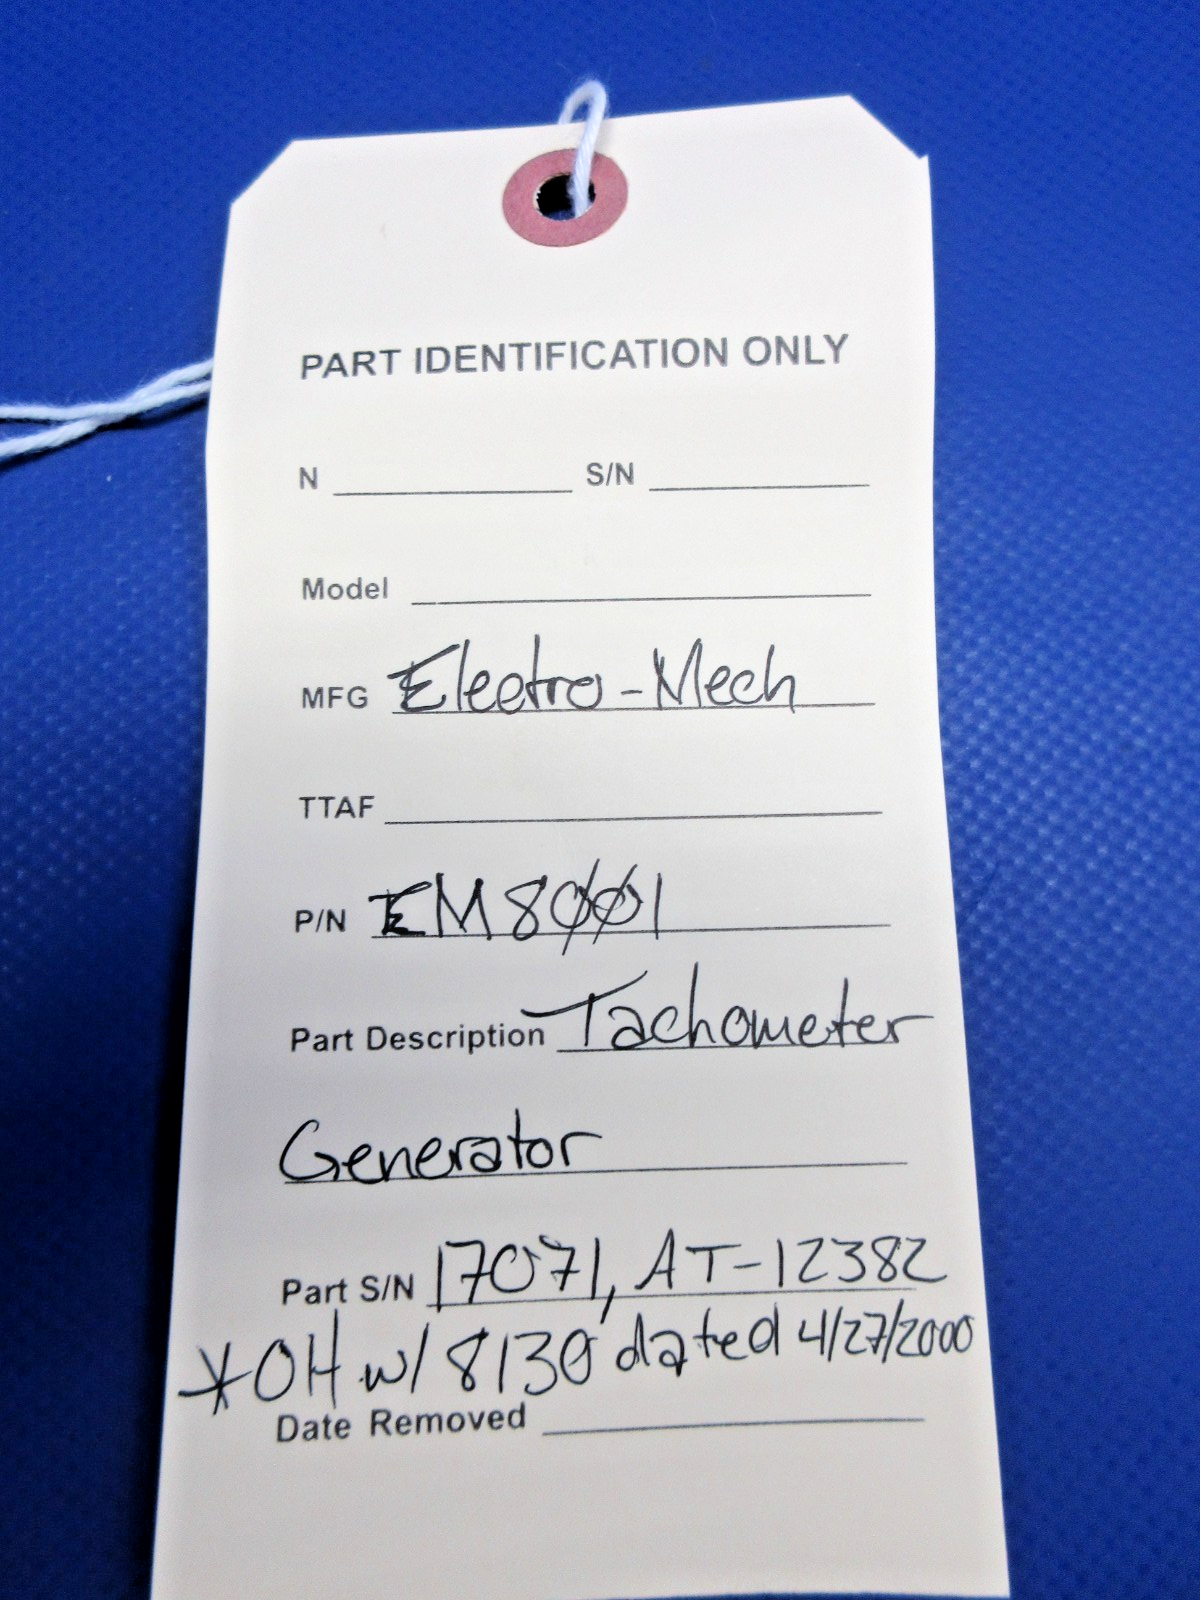 PART IDENTIFICATION ONLY
N S/N
Model
MFG Electro-Mech
TTAF
P/N EM8001
Part Description Tachometer
Generator
Part S/N 17071, AT-12382
*OH w/ 8130 dated 4/27/2000
Date Removed